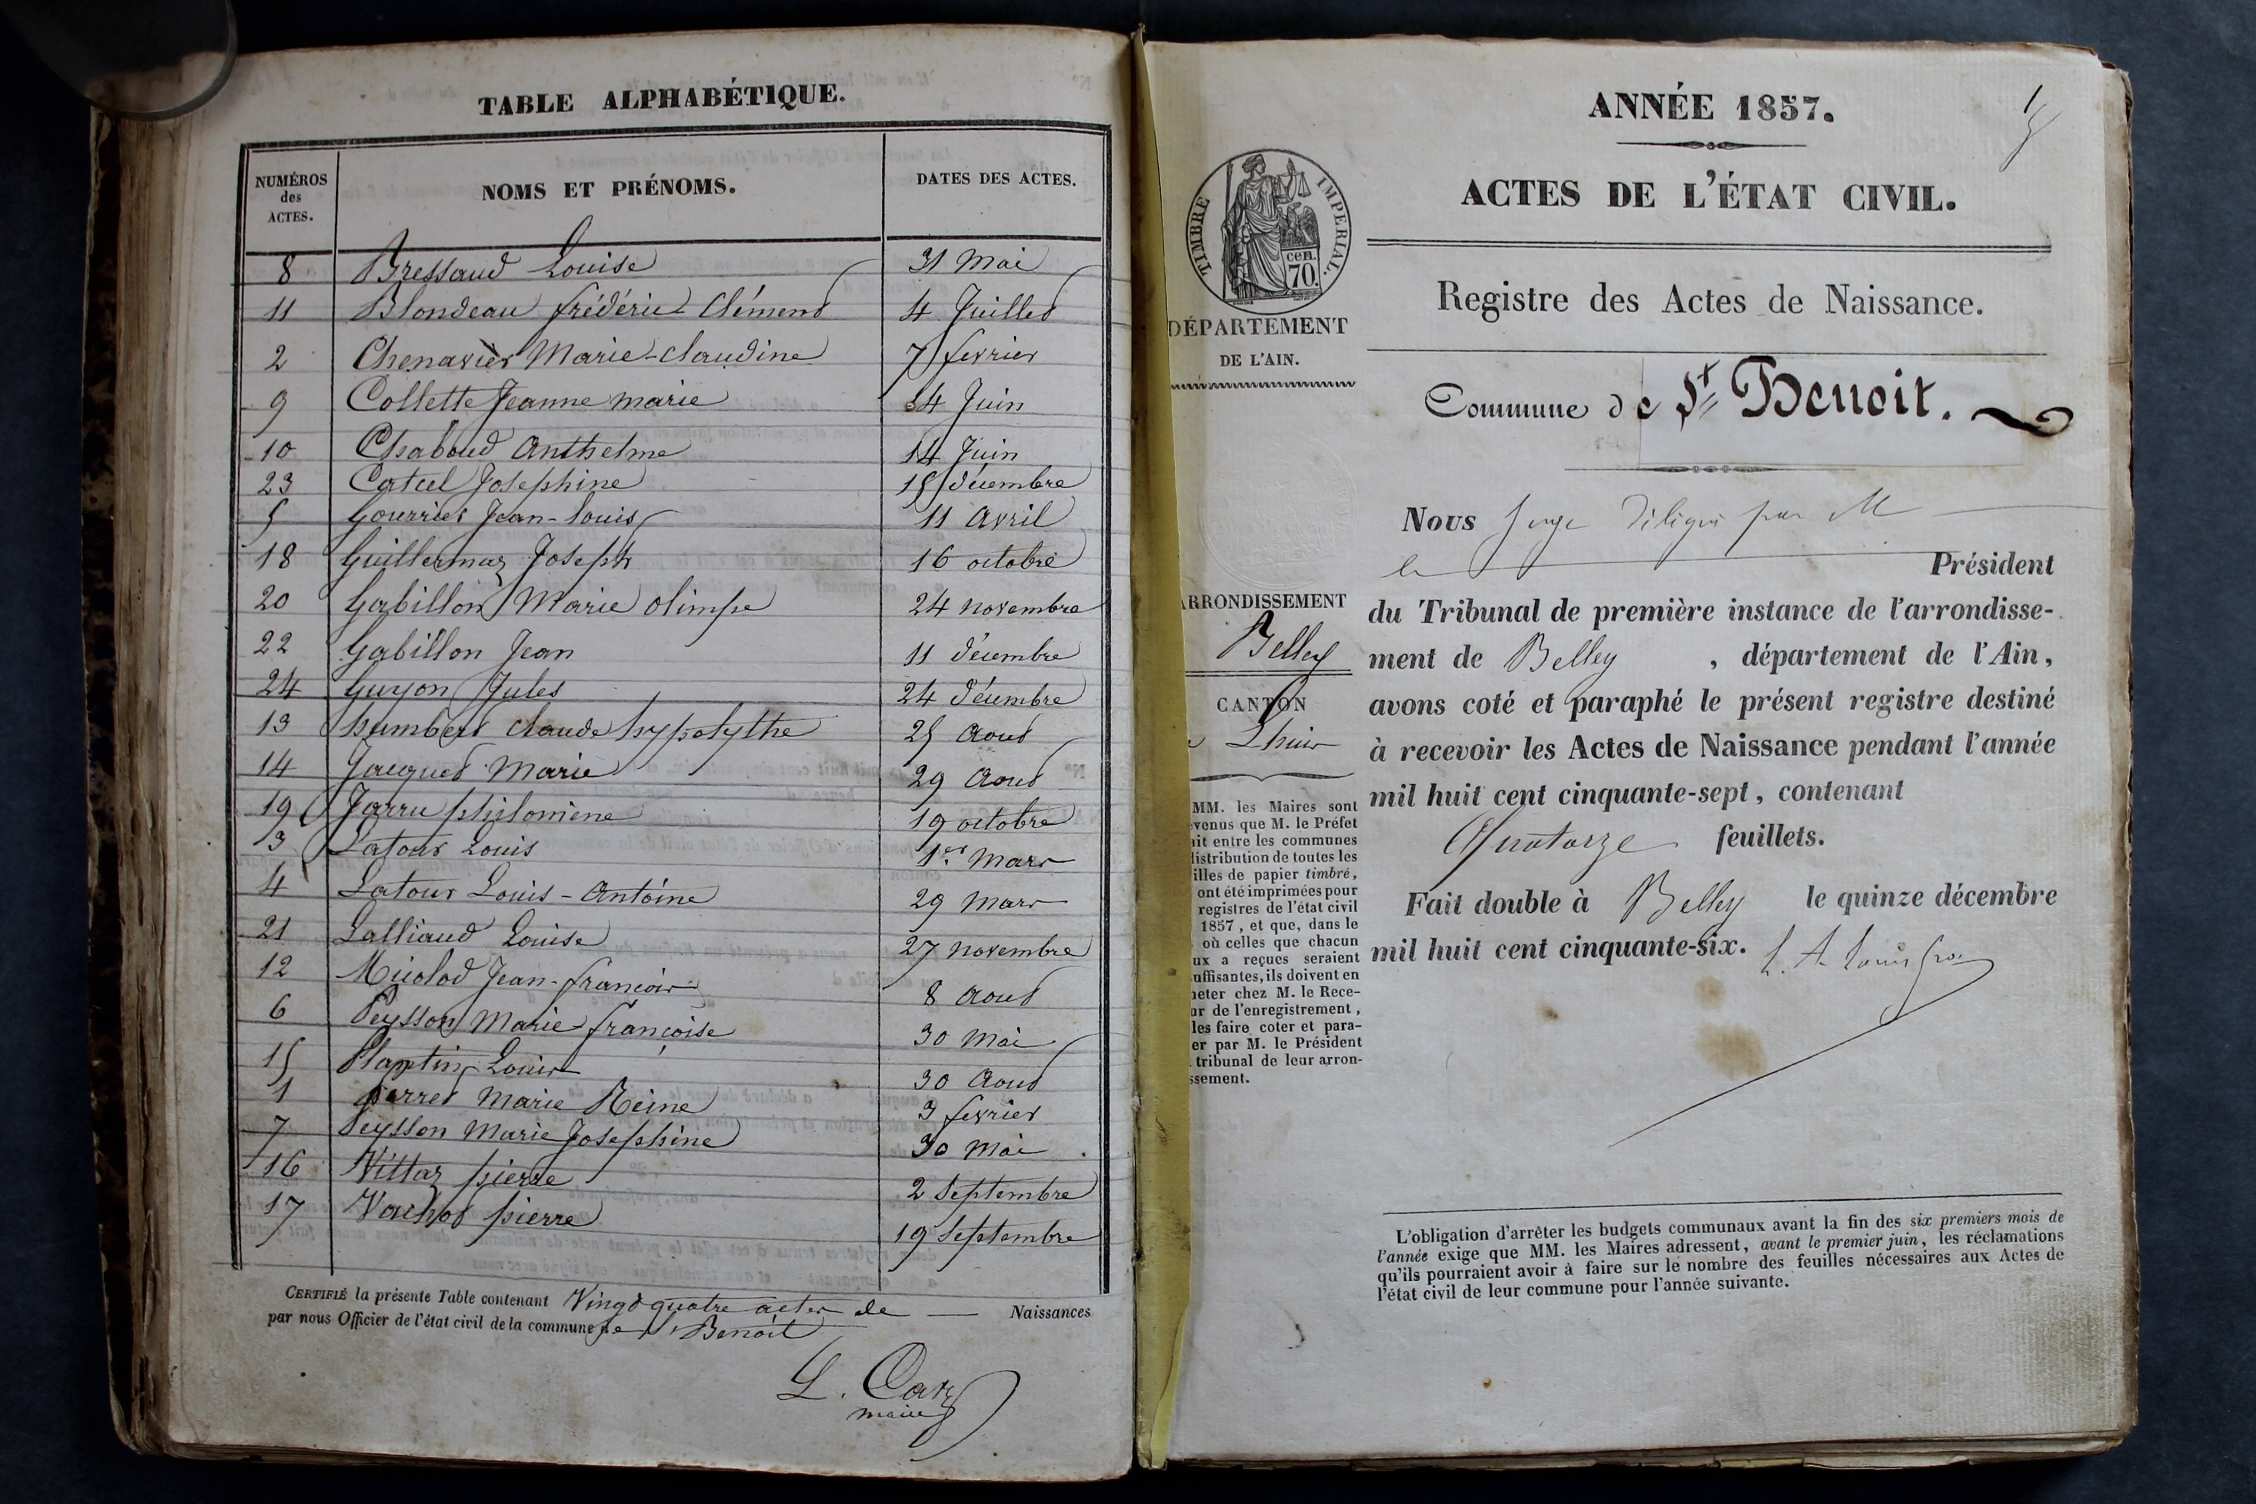 TABLE ALPHABÉTIQUE.
NUMÉROS des ACTES. NOMS ET PRÉNOMS. DATES DES ACTES.
8 Bressaud Louise 31 Mai
11 Blondeau frédéric Clément 4 Juillet
2 Chenavier Marie-claudine 7 fevrier
9 Collette Jeanne marie 14 Juin
10 Chaboud Anthelme 14 Juin
23 Catcel Josephine 15 décembre
5 Gourrier Jean-Louis 11 Avril
18 Guillermaz Joseph 16 octobre
20 Gabillon Marie olimpe 24 novembre
22 Gabillon Jean 11 décembre
24 Guyon Jules 24 décembre
13 humbert claude hyppolythe 25 Aout
14 Jacquet Marie 29 Aout
19 Jarru philomène 19 octobre
3 Latour Louis 1er Mars
4 Latour Louis-Antoine 29 Mars
21 Lalliaud Louise 27 novembre
12 Micolod Jean-françois 8 Aout
6 Peysson Marie françoise 30 Mai
15 Plantin Louis 30 Aout
1 perret Marie Reine 3 fevrier
7 Peysson Marie Josephine 30 Mai
16 Vittaz pierre 2 Septembre
17 Vachod pierre 19 Septembre
CERTIFIÉ la présente Table contenant Vingt quatre actes de Naissances
par nous Officier de l'état civil de la commune de St Benoit
maire
ANNÉE 1857.
ACTES DE L'ÉTAT CIVIL.
TIMBRE IMPERIAL.
cen. 70.
DÉPARTEMENT
DE L'AIN.
Registre des Actes de Naissance.
Commune de St Benoit.
Nous Juge par M
le Président
ARRONDISSEMENT
Belley
CANTON
Lhuis
du Tribunal de première instance de l'arrondisse-
ment de Belley, département de l'Ain,
avons coté et paraphé le présent registre destiné
à recevoir les Actes de Naissance pendant l'année
mil huit cent cinquante-sept, contenant
Quatorze feuillets.
Fait double à Belley le quinze décembre
mil huit cent cinquante-six.
MM. les Maires sont
venus que M. le Préfet
ait entre les communes
distribution de toutes les
illes de papier timbré,
ont été imprimées pour
registres de l'état civil
1857, et que, dans le
où celles que chacun
ux a reçues seraient
uffisantes, ils doivent en
heter chez M. le Rece-
ur de l'enregistrement,
les faire coter et para-
er par M. le Président
tribunal de leur arron-
ssement.
L'obligation d'arrêter les budgets communaux avant la fin des six premiers mois de
l'année exige que MM. les Maires adressent, avant le premier juin, les réclamations
qu'ils pourraient avoir à faire sur le nombre des feuilles nécessaires aux Actes de
l'état civil de leur commune pour l'année suivante.